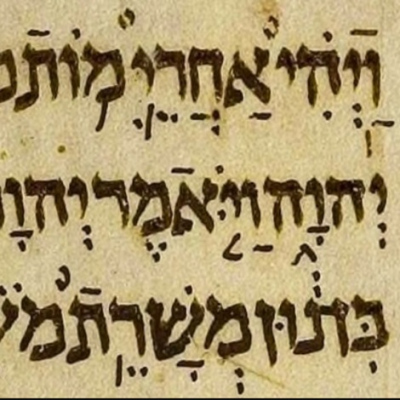 וַיְהִי אַחֲרֵי מוֹת מ
יְהוָה וַיֹּאמֶר יְהוָ
בִּן נוּן מְשָׁרֵת מֹשׁ